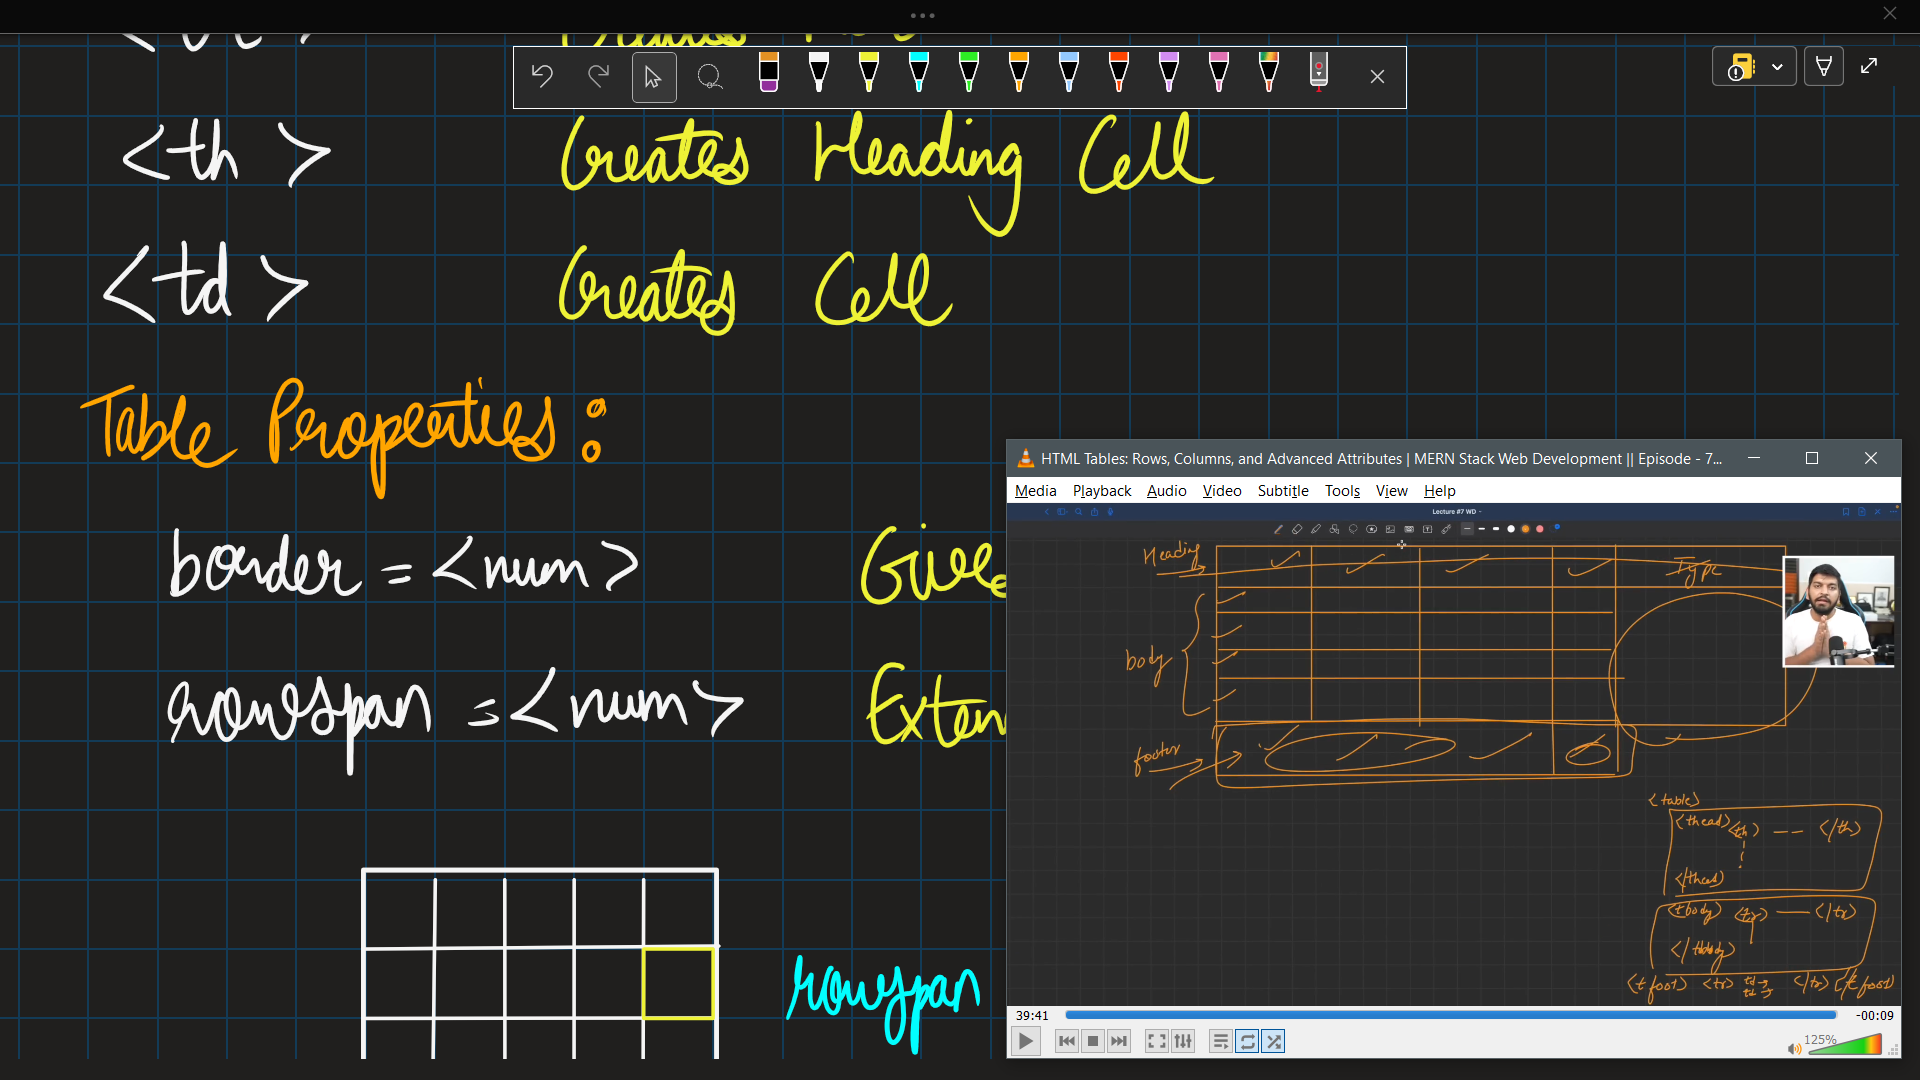 <th > Creates Heading Cell
<td > Creates Cell
Table Properties :
border = <num> Gives
rowspan = <num> Exten
rowspan
HTML Tables: Rows, Columns, and Advanced Attributes | MERN Stack Web Development || Episode - 7...
Media Playback Audio Video Subtitle Tools View Help
Lecture #7 WD
Heading Type
body
footer
<table>
<thead> <th> -- </th>
</thead>
<tbody> <tr> — </tr>
</tbody>
<tfoot> <tr> td td </tr> </tfoot>
39:41 -00:09
125%